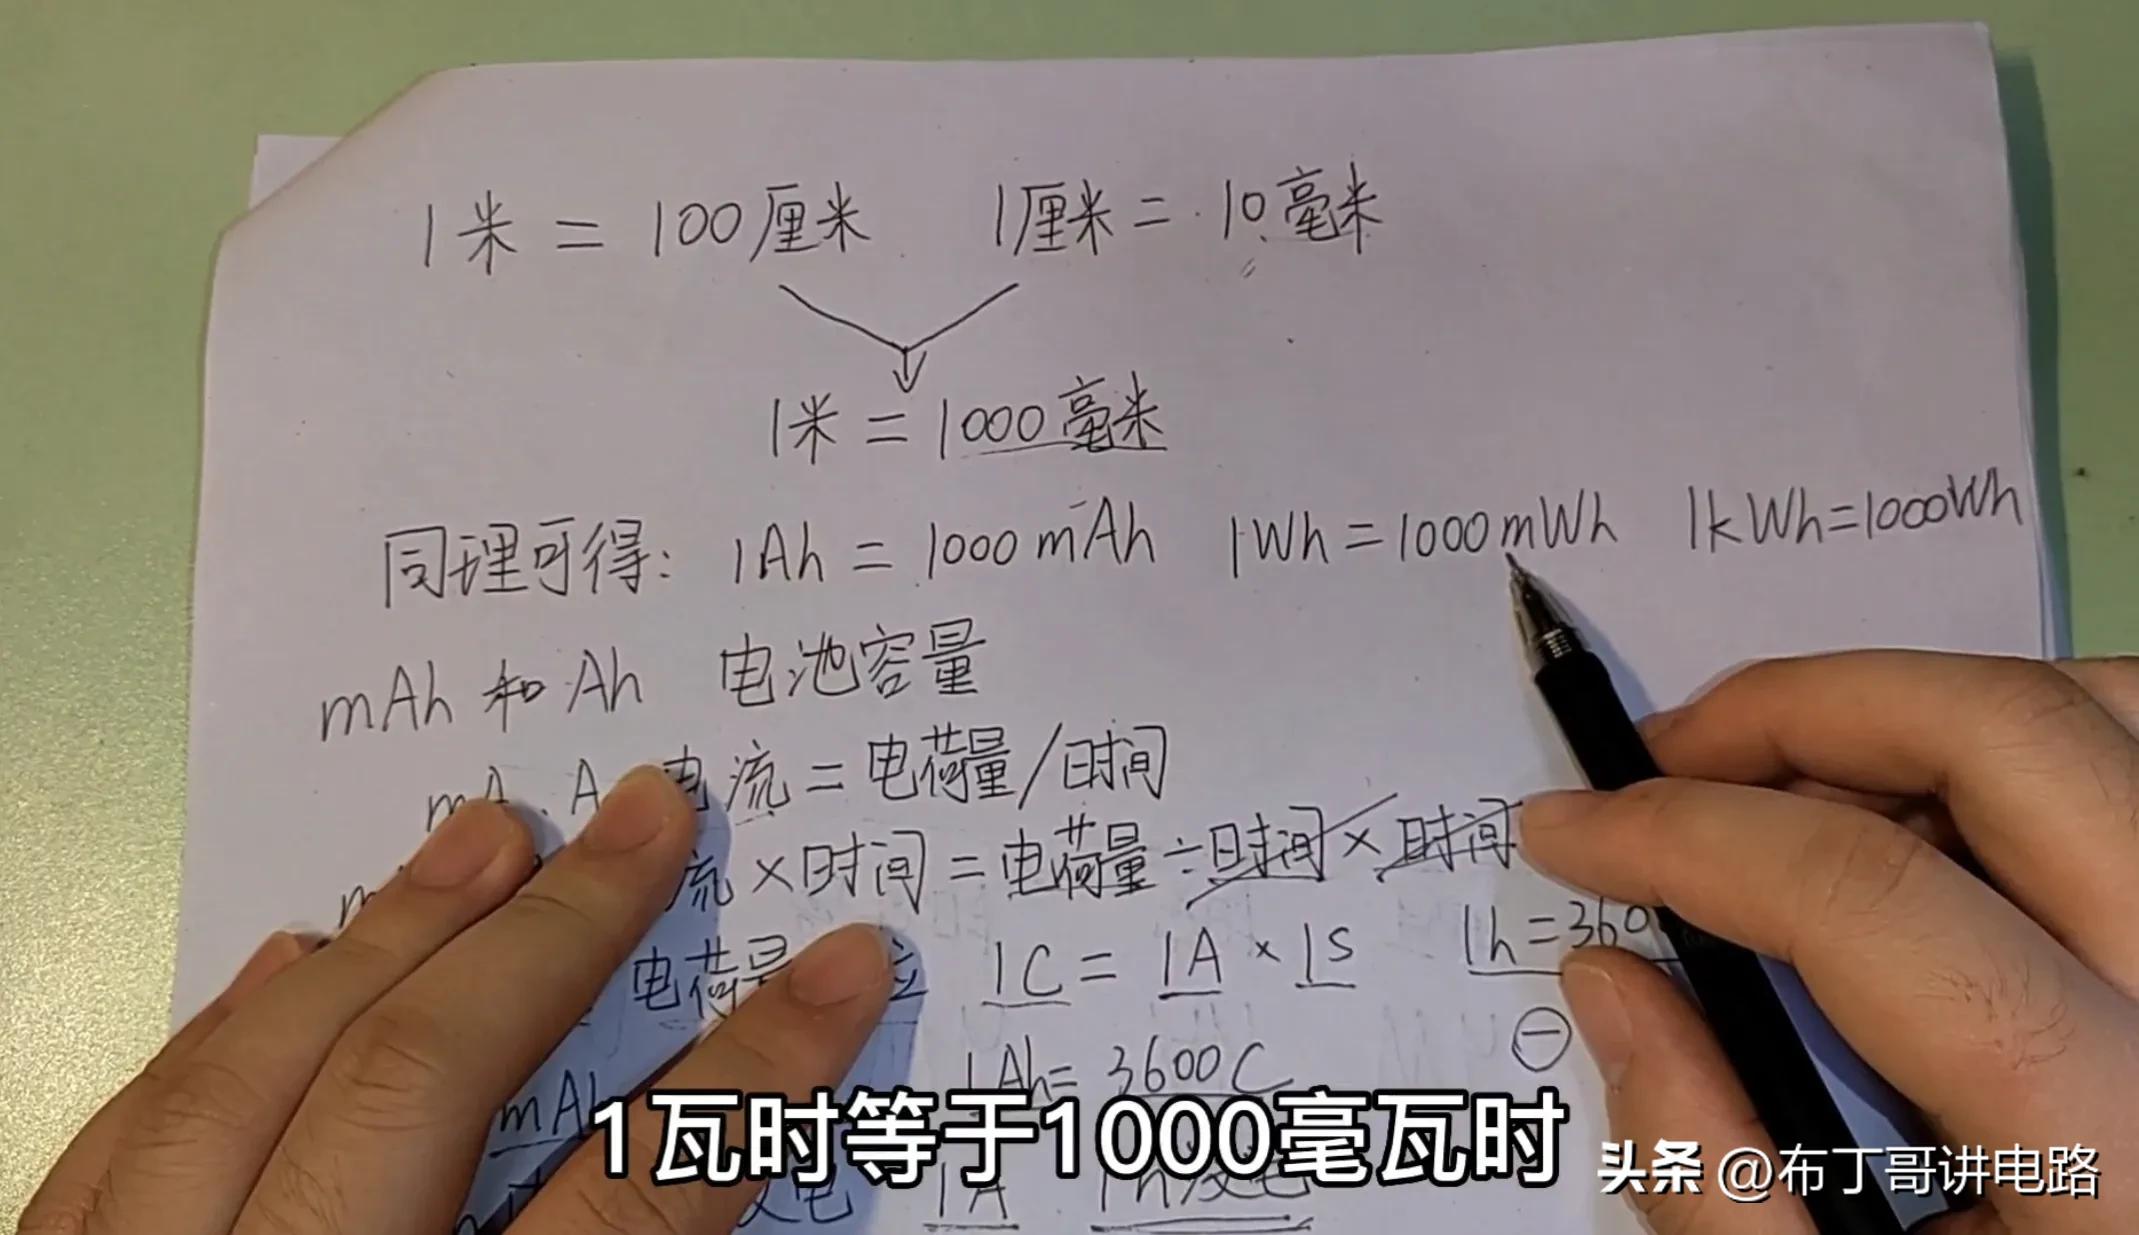 1米 = 100厘米 1厘米 = 10毫米
1米 = 1000毫米
同理可得: 1Ah = 1000mAh 1Wh = 1000mWh 1kWh=1000Wh
mAh 和 Ah 电池容量
mA、A 电流 = 电荷量/时间
流 × 时间 = 电荷量 ÷ 时间 × 时间
电荷量 1C = 1A × 1S 1h = 360
1Ah= 3600C
mAh
1瓦时等于1000毫瓦时
电 1A 1h
头条 @布丁哥讲电路